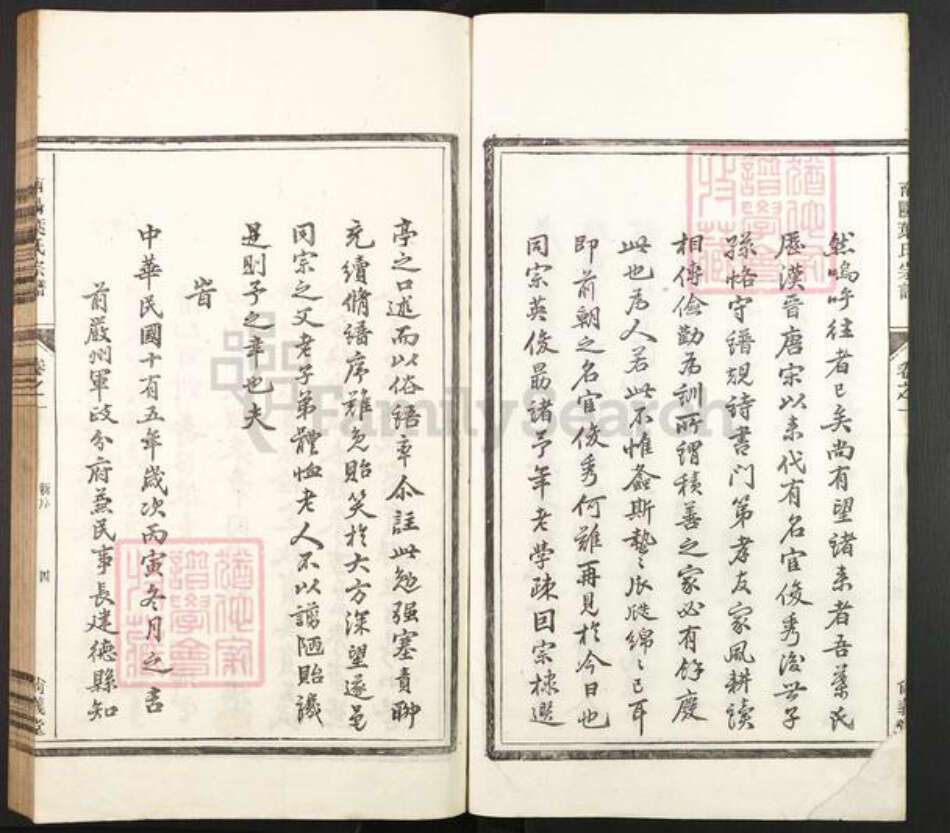 然嗚呼往者已矣尚有望諸来者吾葉氏
歷漢晉唐宋以来代有名宦俊秀後世子
孫恪守譜規詩書門第孝友家風耕讀
相傳儉勤為訓所謂積善之家必有餘慶
此也為人若此不惟螽斯蟄蟄瓜瓞綿綿已耳
即前朝之名宦俊秀何難再見於今日也
同宗英俊勗諸予年老學疎因宗棣選
亭之口述而以俗語率尒註此勉强塞責聊
充續脩譜序難免貽笑於大方深望遂邑
同宗之父老子弟體恤老人不以謭陋貽譏
是則予之幸也夫
旹
中華民國十有五年歲次丙寅冬月之吉
前嚴州軍政分府兼民事長建德縣知
南陽葉氏宗譜
卷之一
新序
四
尙義堂
FamilySearch